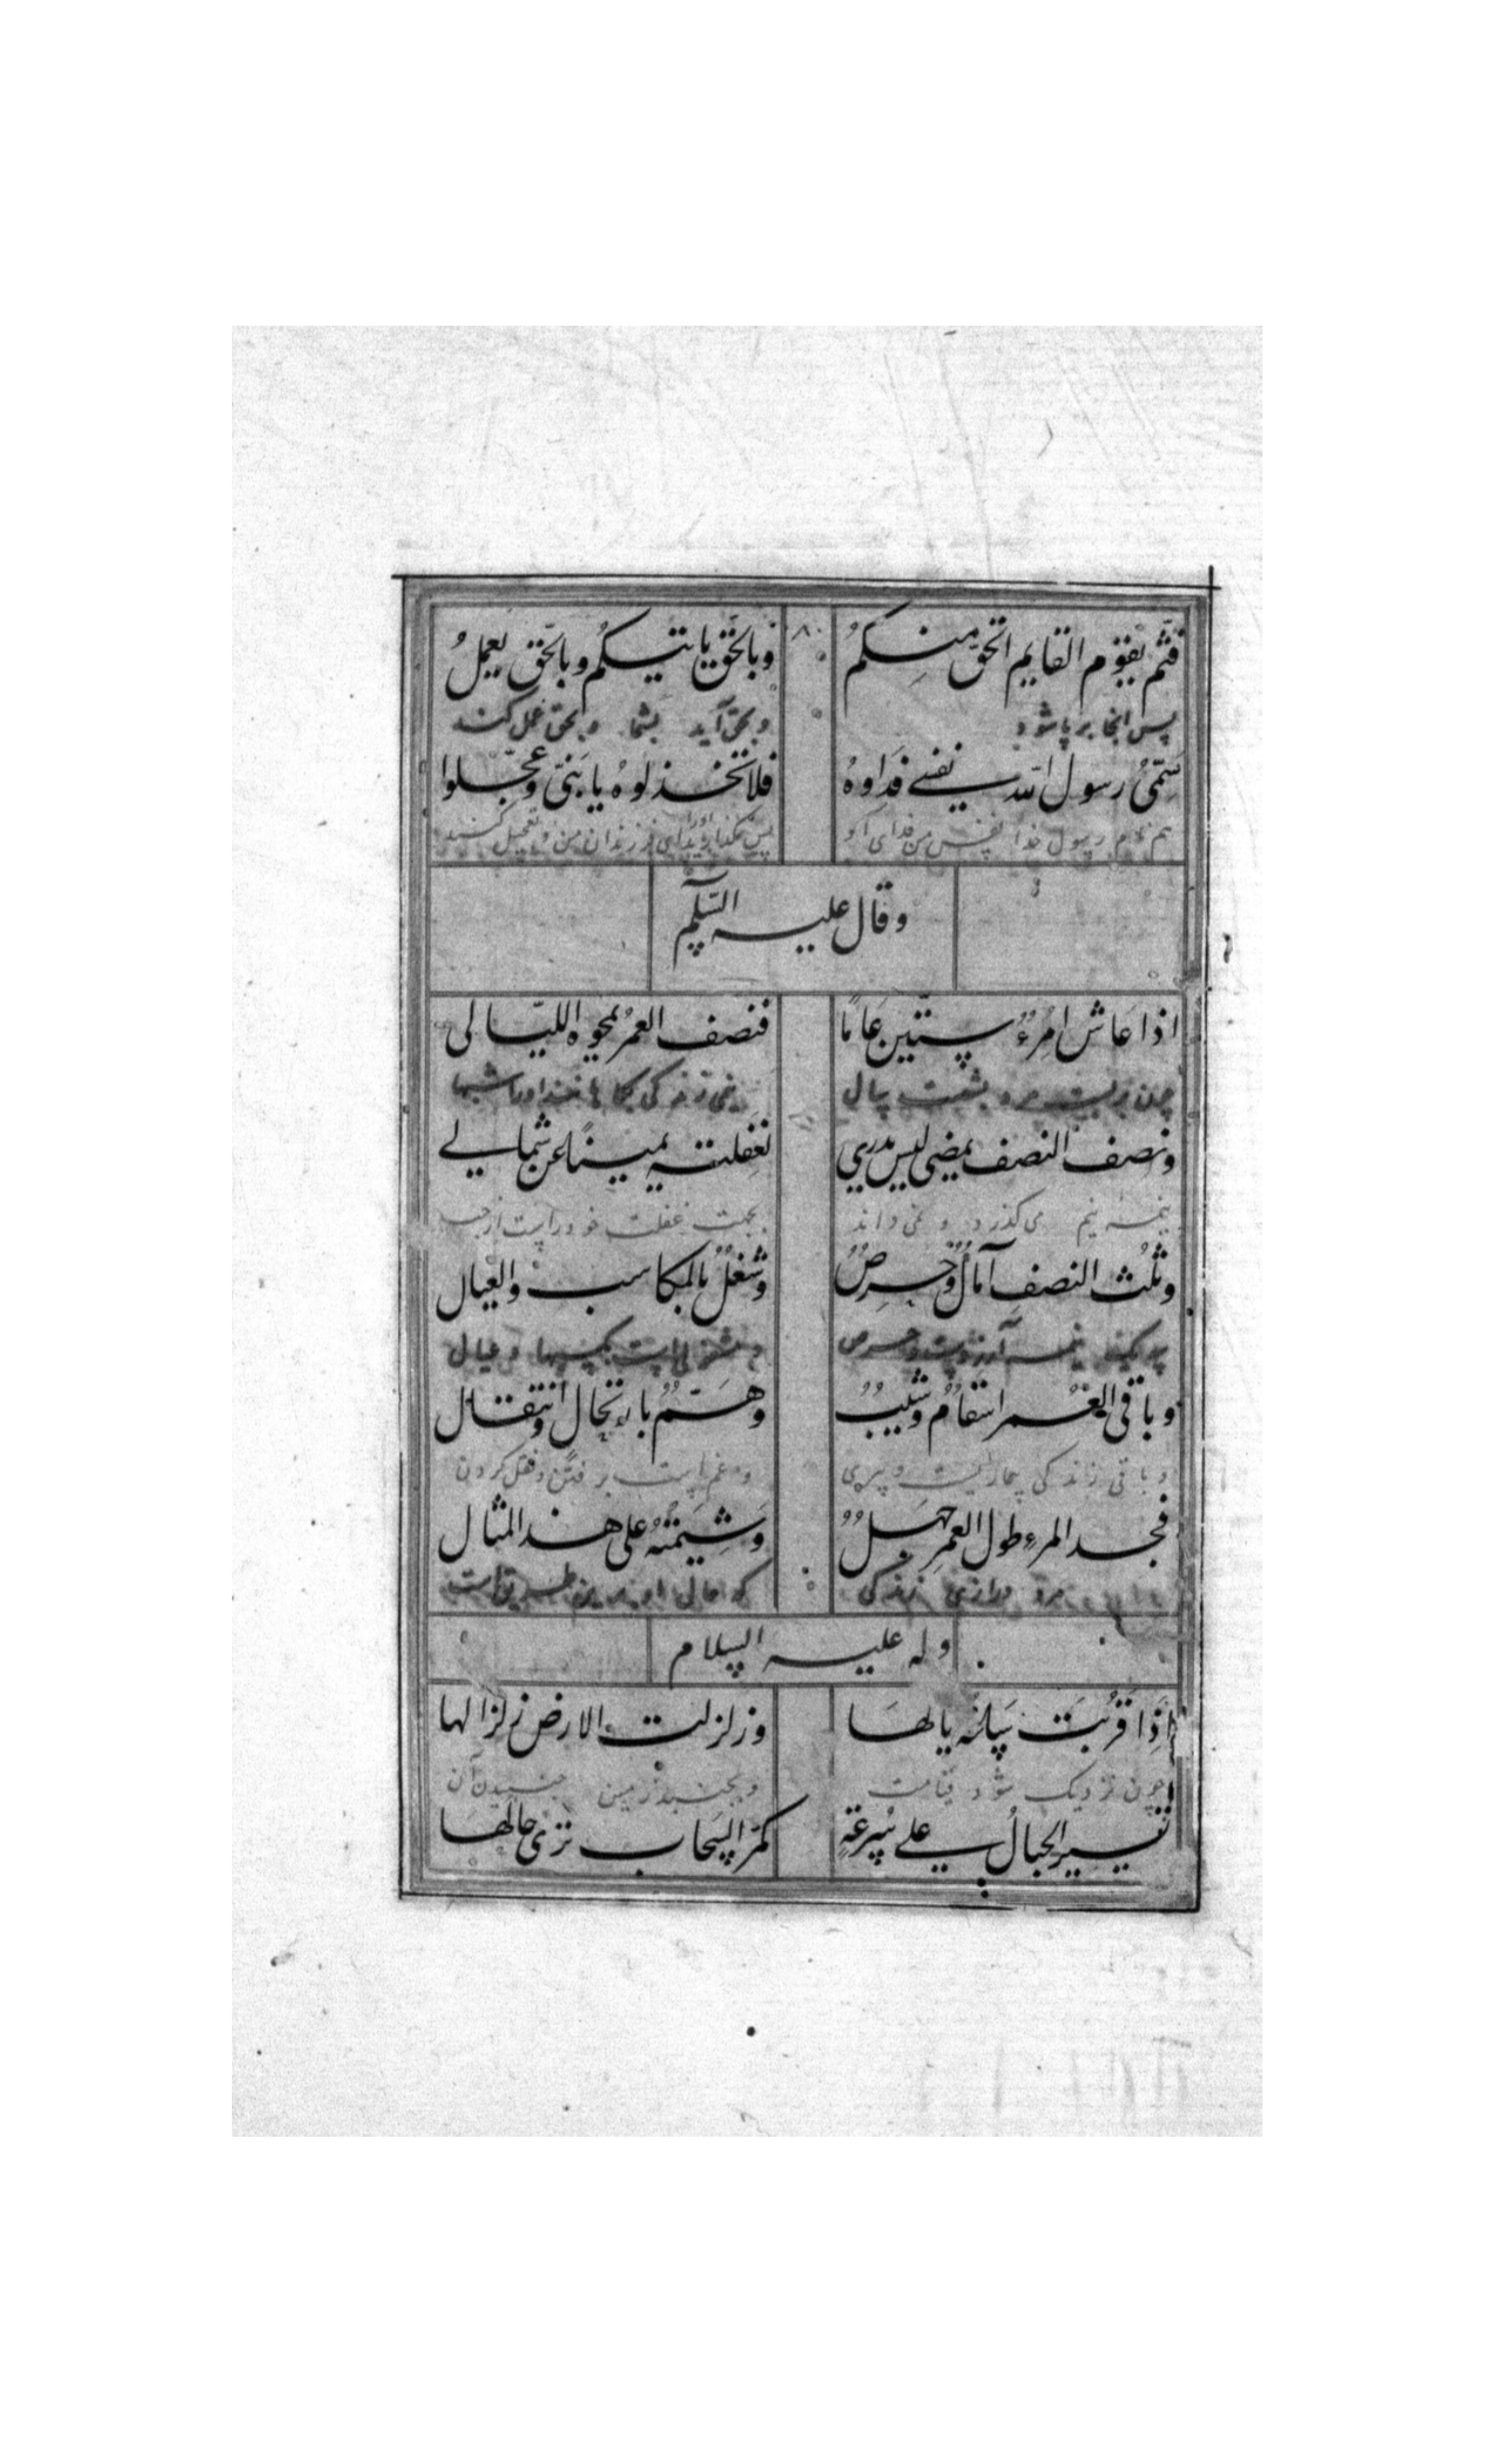 فثم يقوم القايم الحق منكمُ وبالحق ياتيكم وبالحق يعملُ
پس انجا بر پا شود و بحق آید بشما و بحق عمل کند
سَمّیُ رسول الله نفسے فداوهُ فلا تخذلوهُ يا بَنیّ وعجّلوا
هم نام رسول خدا نفس من فدای او پس مگذارید اورا ای فرزندان من و تعجیل کنید
وقال عليه السّلم
اذا عَاش امُرءٌ ستّين عَامًا فنصف العمرُ يمحوه الليّالى
چون بزیست مرد شصت سال نیمی زندکی اورا شبها
ونصف النصف يمضى ليس يدري لغفلته يمينًا عن شمالے
نیمه نیم می کذرد و نمی داند بجهت غفلت خود راست از چپ
وثلث النصف آمالٌ وحرصٌ وشغلٌ بالمكاسب والعيال
نیمه آرزوست و حرص و مشغولی است بکسبها و عیال
وباقى العُمر اسقامٌ وشيبٌ وهَمٌّ بارتحال وانتقال
و باقی زندکی بیماریست و پیری و غمهاست برفتن و نقل کردن
فجد المرءِ طول العمر جهلٌ وَشِيَمتهُ على هذ المثال
مرد درازی زندکی که حال او برین طریق است
وله عليه السلام
اِذَا قرُبَت سَاعَة يالهَا وزلزلت الارض زلزالها
چون نزدیک شود قیامت و بجنبد زمین جنبیدن آن
تسير الجبالُ علے سُرعَةٍ كمَرّ السَّحاب ترى حالهَا